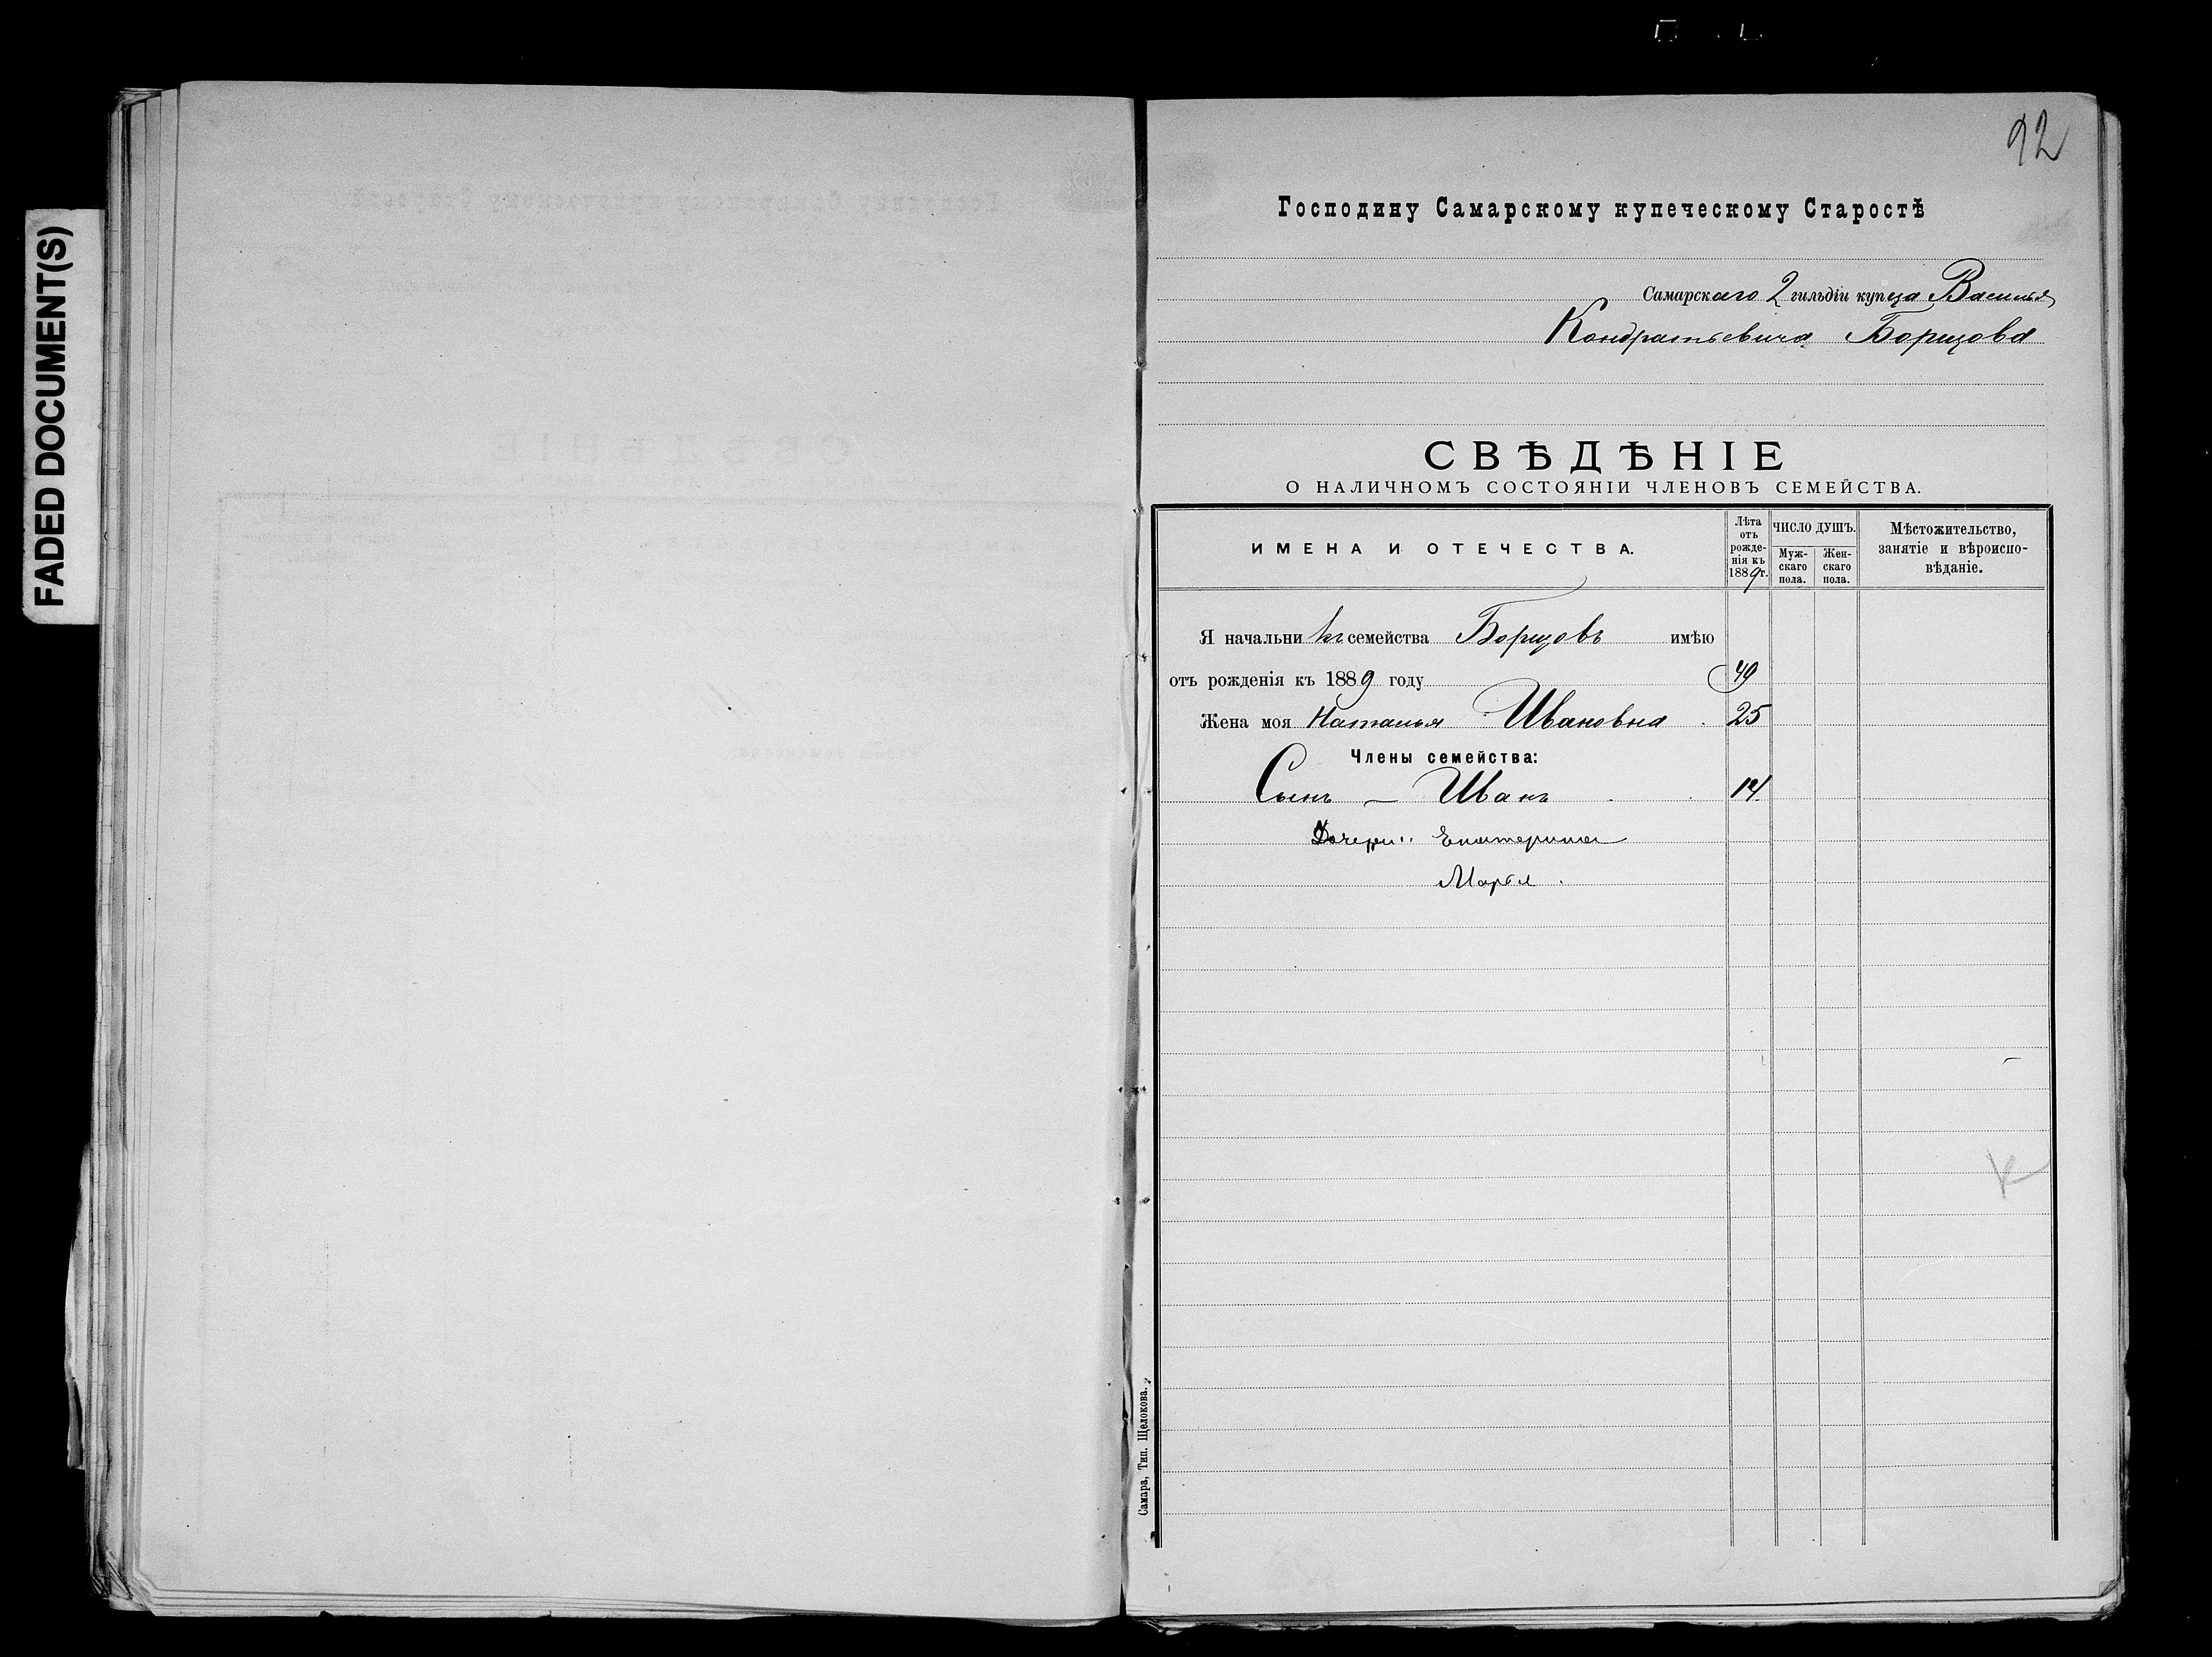 FADED DOCUMENT(S)
92
Господину Самарскому купеческому Старостѣ
Самарскаго 2 гильдіи купца Василья
Кондратьевича Борщова
СВѢДѢНІЕ
О НАЛИЧНОМЪ СОСТОЯНІИ ЧЛЕНОВЪ СЕМЕЙСТВА.
ИМЕНА И ОТЕЧЕСТВА.
Лѣта
отъ
рожде-
нія къ
1889 г.
ЧИСЛО ДУШЪ.
Муж-
скаго
пола.
Жен-
скаго
пола.
Мѣстожительство,
занятіе и вѣроиспо-
вѣданіе.
Я начальникъ семейства Борщовъ имѣю
отъ рожденія къ 1889 году 49
Жена моя Наталья Ивановна 25
Члены семейства:
Сынъ — Иванъ 14
Дочери: Екатерина
Марья
Самара, Тип. Щелокова.